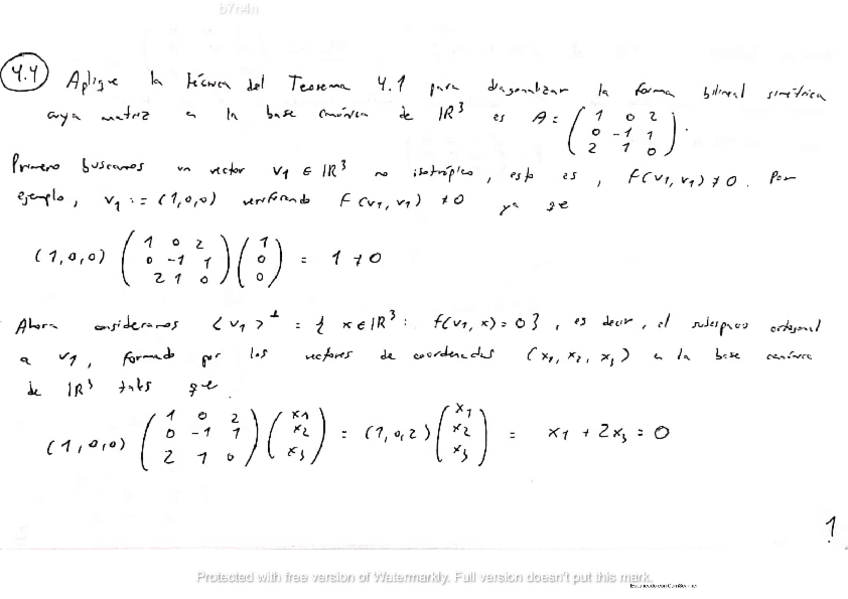 b7r4n
4.4 Aplique la técnica del Teorema 4.1 para diagonalizar la forma bilineal simétrica
cuya matriz en la base canónica de IR³ es A = ( 1 0 2
0 -1 1
2 1 0 ).
Primero buscamos un vector v1 ∈ IR³ no isotrópico, esto es, f(v1, v1) ≠ 0. Por
ejemplo, v1 := (1,0,0) verificando f(v1, v1) ≠ 0 ya qe
(1,0,0) ( 1 0 2 ) ( 1 ) = 1 ≠ 0
0 -1 1 0
2 1 0 0
Ahora consideramos <v1>⊥ = { x ∈ IR³ : f(v1, x) = 0 }, es decir, el subespacio ortogonal
a v1, formado por los vectores de coordenadas (x1, x2, x3) en la base canónica
de IR³ tales qe
(1,0,0) ( 1 0 2 ) ( x1 ) = (1,0,2) ( x1 ) = x1 + 2x3 = 0
0 -1 1 x2 x2
2 1 0 x3 x3
1
Protected with free version of Watermarkly. Full version doesn't put this mark.
Escaneado con CamScanner